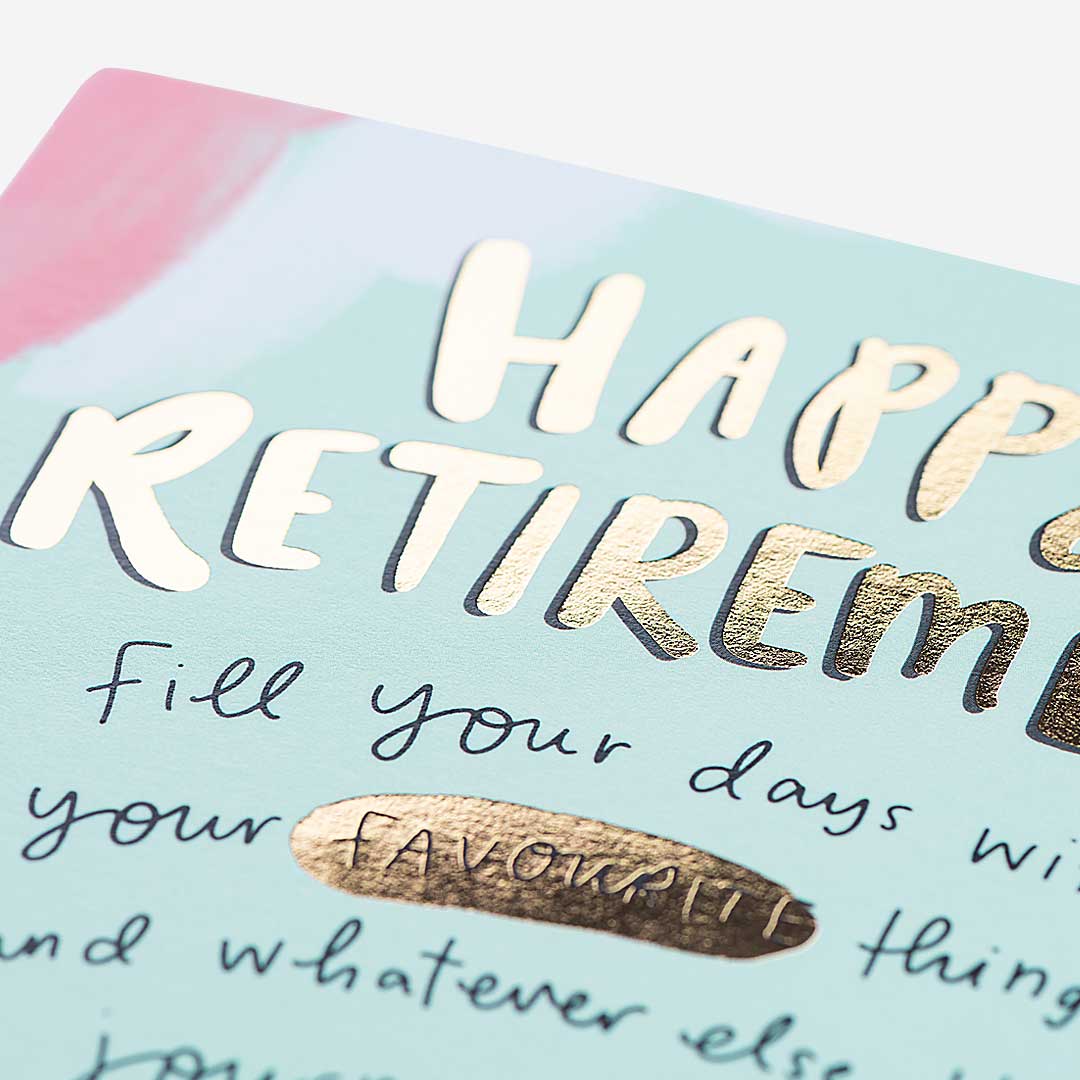 HAPPY
RETIREM
Fill your days wi
your FAVOURITE thing
and whatever else